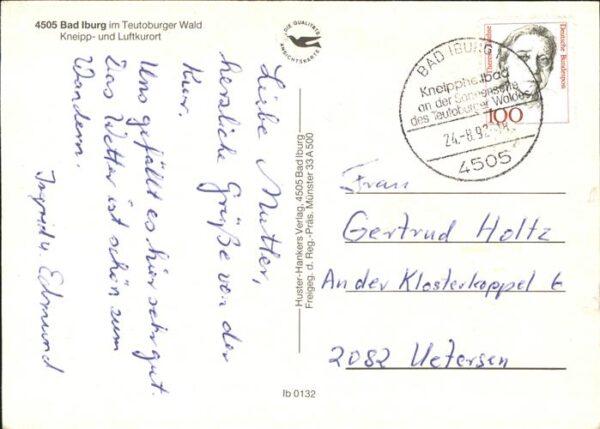 4505 Bad Iburg im Teutoburger Wald
Kneipp- und Luftkurort
DIE QUALITÄTS
ANSICHTSKARTE
Liebe Mutter,
herzliche Grüße von der
Kur.
Uns gefällt es hier sehr gut.
Das Wetter ist schön zum
Wandern.
Ingrid u. Edmund
Huster-Hankers Verlag, 4505 Bad Iburg
Freigeg. d. Reg.-Präs. Münster 33 A 500
Ib 0132
Deutsche Bundespost
100
BAD IBURG
Kneippheilbad
an der Sonnenseite
des Teutoburger Waldes
24.-8.92
4505
Frau
Gertrud Holtz
An der Klosterkoppel 6
2082 Uetersen